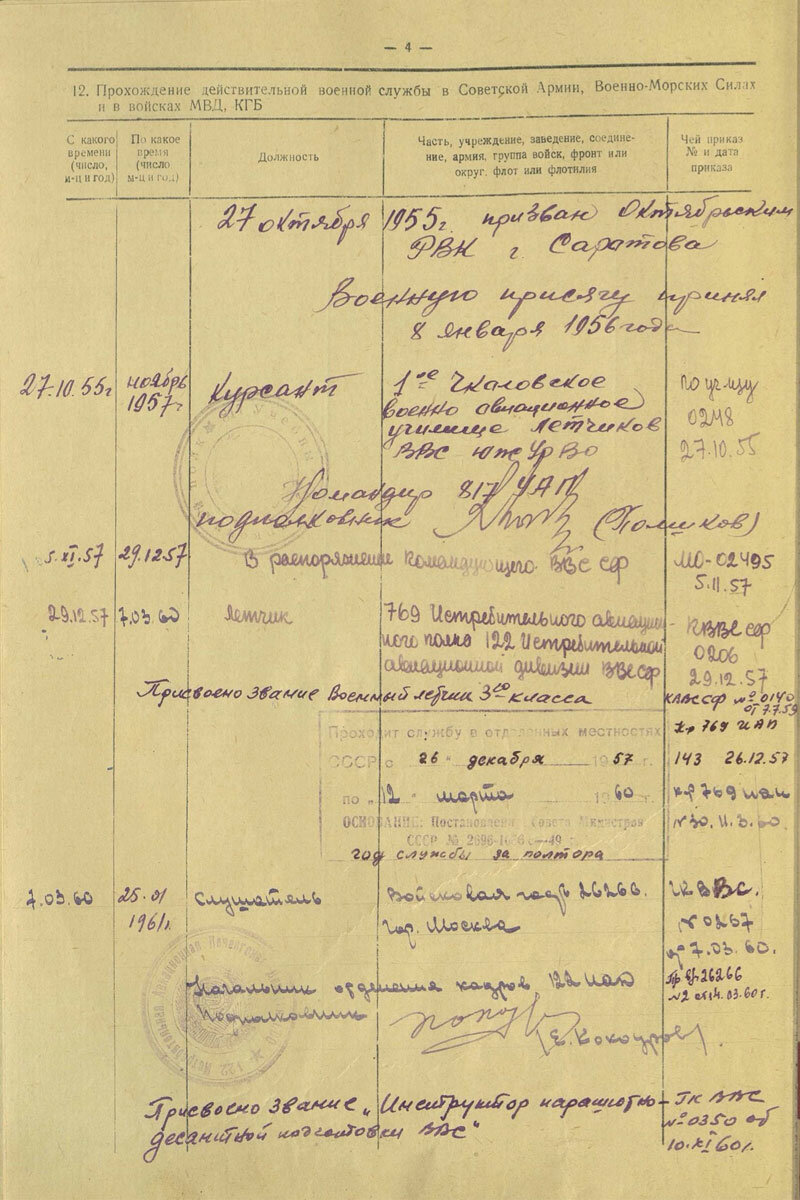 — 4 —
12. Прохождение действительной военной службы в Советской Армии, Военно-Морских Силах
и в войсках МВД, КГБ
С какого
времени
(число,
м-ц и год)
По какое
время
(число
м-ц и год)
Должность
Часть, учреждение, заведение, соедине-
ние, армия, группа войск, фронт или
округ, флот или флотилия
Чей приказ
№ и дата
приказа
27 октября 1955г. призван Октябрьским
РВК г. Саратова
Военную присягу принял
8 января 1956 года
27.10.55г
ноябрь
1957г.
Курсант
1ое Чкаловское
военно авиационное
училище летчиков
ВВС ЮжУрВО
по уч-щу
0248
27.10.55
Командир 817 УАП
подполковник (Полшков)
5.XI.57 29.12.57 В распоряжение Командующего ВВС СФ
МО-02495
5.11.57
29.12.57 7.03.60 летчик
769 Истребительного авиацион-
ного полка 122 Истребительной
авиационной дивизии ВВС СФ
КВВС СФ
0206
29.12.57
Присвоено звание Военный летчик 3го класса
КВВС СФ №0140
от 7.7.59
Пр 769 ИАП
Проходит службу в отдаленных местностях
СССР с 26 " декабря 1957 г.
143 26.12.57
по " 12 " марта 1960 г.
пр 769 иап
ОСНОВАНИЕ: Постановление Совета Министров
СССР №
№30, 11.3.60
год службы за полтора
7.03.60
25.01
1961г.
Слушатель
Войсковая часть 26266.
Гор. Москва
ВВС.
№0267
от 7.03.60.
Пр 26266
№2 от 14.03.60г.
Начальник отделения кадров 122 иад
Подполковник
(Е. Кокоуров)
Присвоено звание „Инструктор парашютно-
десантной подготовки ВВС"
ГК ВВС
№0350 от
10.XI 60г.